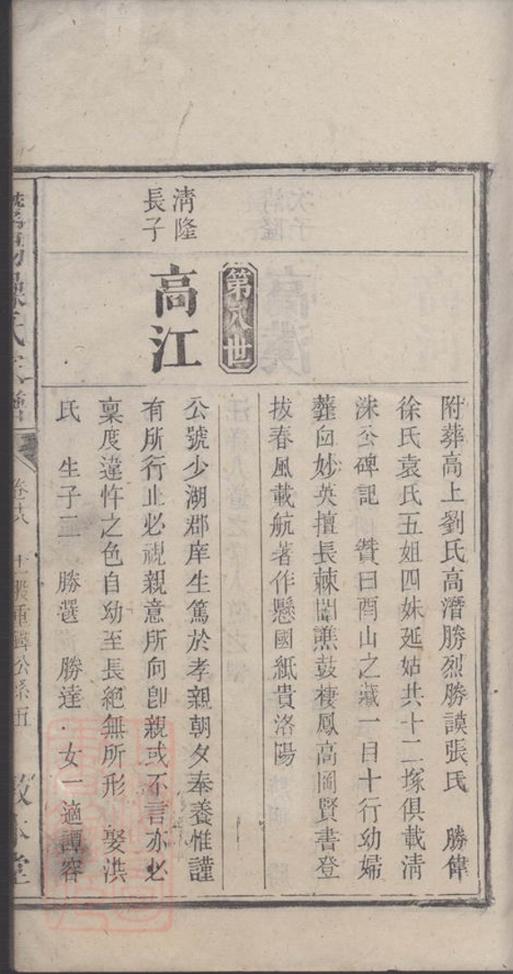 附葬高上劉氏高潛勝烈勝謨張氏　勝偉
徐氏袁氏五姐四妹延姑共十二塚俱載清
洙公碑記　贊曰酉山之藏一目十行幼婦
虀臼妙英擅長棘闈譙鼓棲鳳高岡賢書登
拔春風載航著作懸國紙貴洛陽
第八世
清隆
長子
高江
公號少湖郡庠生篤於孝親朝夕奉養惟謹
有所行止必視親意所向卽親或不言亦必
稟度違忤之色自幼至長絕無所形　娶洪
氏　生子二　勝選　勝達　女一適譚容